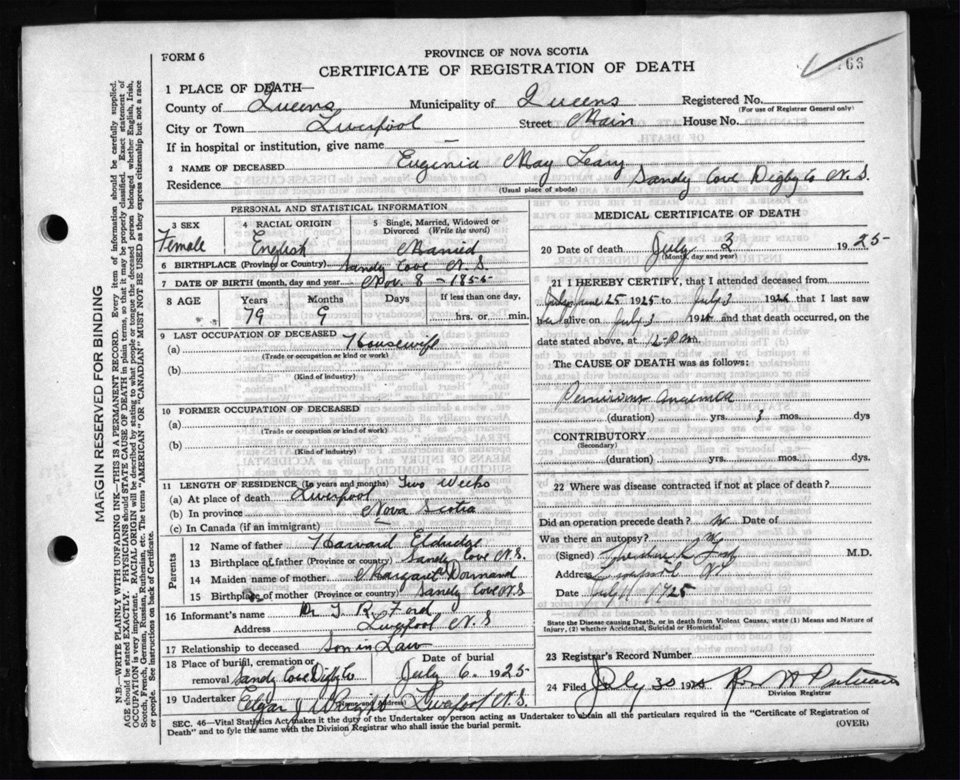 66
FORM 6
PROVINCE OF NOVA SCOTIA
CERTIFICATE OF REGISTRATION OF DEATH
1 PLACE OF DEATH—
County of Queens Municipality of Queens Registered No.
(For use of Registrar General only)
City or Town Liverpool Street Main House No.
If in hospital or institution, give name —
2 NAME OF DECEASED Eugenia May Leary
Residence Sandy Cove Digby Co N.S.
(Usual place of abode)
PERSONAL AND STATISTICAL INFORMATION
3 SEX 4 RACIAL ORIGIN 5 Single, Married, Widowed or Divorced (Write the word)
Female English Married
6 BIRTHPLACE (Province or Country) Sandy Cove N.S.
7 DATE OF BIRTH (month, day and year) Nov. 8 - 1855
8 AGE Years Months Days If less than one day,
79 9 hrs. or min.
9 LAST OCCUPATION OF DECEASED
(a) Housewife
(Trade or occupation or kind of work)
(b)
(Kind of industry)
10 FORMER OCCUPATION OF DECEASED
(a)
(Trade or occupation or kind of work)
(b)
(Kind of industry)
11 LENGTH OF RESIDENCE (In years and months) Two Weeks
(a) At place of death Liverpool
(b) In province Nova Scotia
(c) In Canada (if an immigrant)
Parents
12 Name of father Harvard Eldridge
13 Birthplace of father (Province or country) Sandy Cove N.S.
14 Maiden name of mother Margaret
15 Birthplace of mother (Province or country) Sandy Cove N.S
16 Informant's name Dr T R Ford
Address Liverpool N.S
17 Relationship to deceased Son in Law
18 Place of burial, cremation or removal Sandy Cove Digby Co Date of burial July 6. 1925
19 Undertaker Edgar J (Address) Liverpool N.S.
MEDICAL CERTIFICATE OF DEATH
20 Date of death July 3 1925
(Month, day and year)
21 I HEREBY CERTIFY, that I attended deceased from
June 25 1925 to July 3 192 that I last saw
her alive on July 3 192 and that death occurred, on the
date stated above, at 12 P.m.
The CAUSE OF DEATH was as follows:
Pernicious Anaemia
(duration) yrs. mos. dys
CONTRIBUTORY
(Secondary)
(duration) yrs. mos. dys
22 Where was disease contracted if not at place of death?
Did an operation precede death? Date of
Was there an autopsy?
(Signed) M.D.
Address
Date July 1925
State the Disease causing Death, or in death from Violent Causes, state (1) Means and Nature of Injury, (2) whether Accidental, Suicidal or Homicidal.
23 Registrar's Record Number
24 Filed July 30 192
Division Registrar
SEC. 46—Vital Statistics Act makes it the duty of the Undertaker or person acting as Undertaker to obtain all the particulars required in the "Certificate of Registration of Death" and to fyle the same with the Division Registrar who shall issue the burial permit.
(OVER)
MARGIN RESERVED FOR BINDING
N.B.—WRITE PLAINLY WITH UNFADING INK—THIS IS A PERMANENT RECORD. Every item of information should be carefully supplied.
AGE should be stated EXACTLY. PHYSICIANS should STATE CAUSE OF DEATH in plain terms, so that it may be properly classified. Exact statement of
OCCUPATION is very important. RACIAL ORIGIN will be described by stating to what people or tongue the deceased person belonged whether English, Irish,
Scotch, French, German, Russian, Ruthenian, etc. The terms "AMERICAN" or "CANADIAN" MUST NOT BE USED as they express citizenship but not a race
or people. See instructions on back of Certificate.